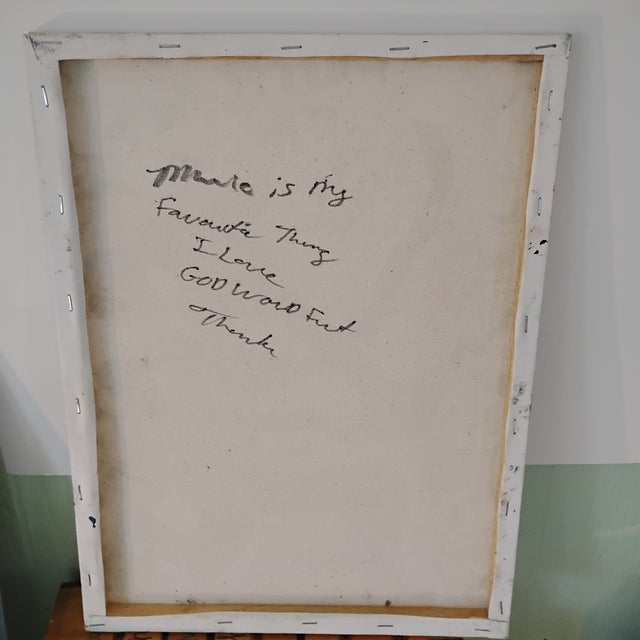 Music is my
Favourite Thing
I Love
GOD WORD First
Thanks